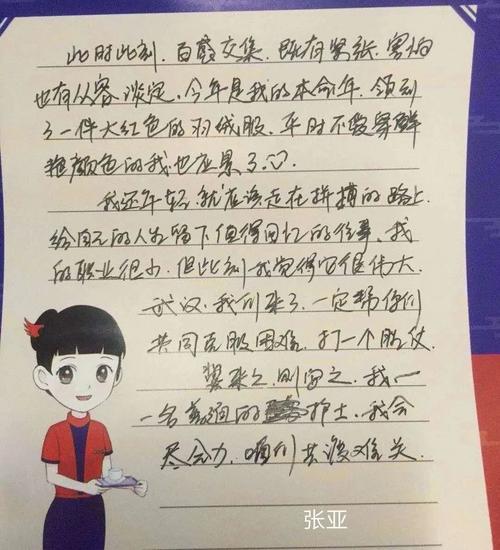 此时此刻，百感交集，既有紧张、害怕
也有从容淡定，今年是我的本命年，领到
了一件大红色的羽绒服，平时不爱穿鲜
艳颜色的我也应景了
我还年轻，就应该走在拼搏的路上，
给自己的人生留下值得回忆的往事，我
的职业很小，但此刻我觉得它很伟大，
武汉，我们来了，一定帮你们
共同克服困难，打一个胜仗
既来之，则安之，我一
一名普通的护士，我会
尽全力，咱们共渡难关.
张亚